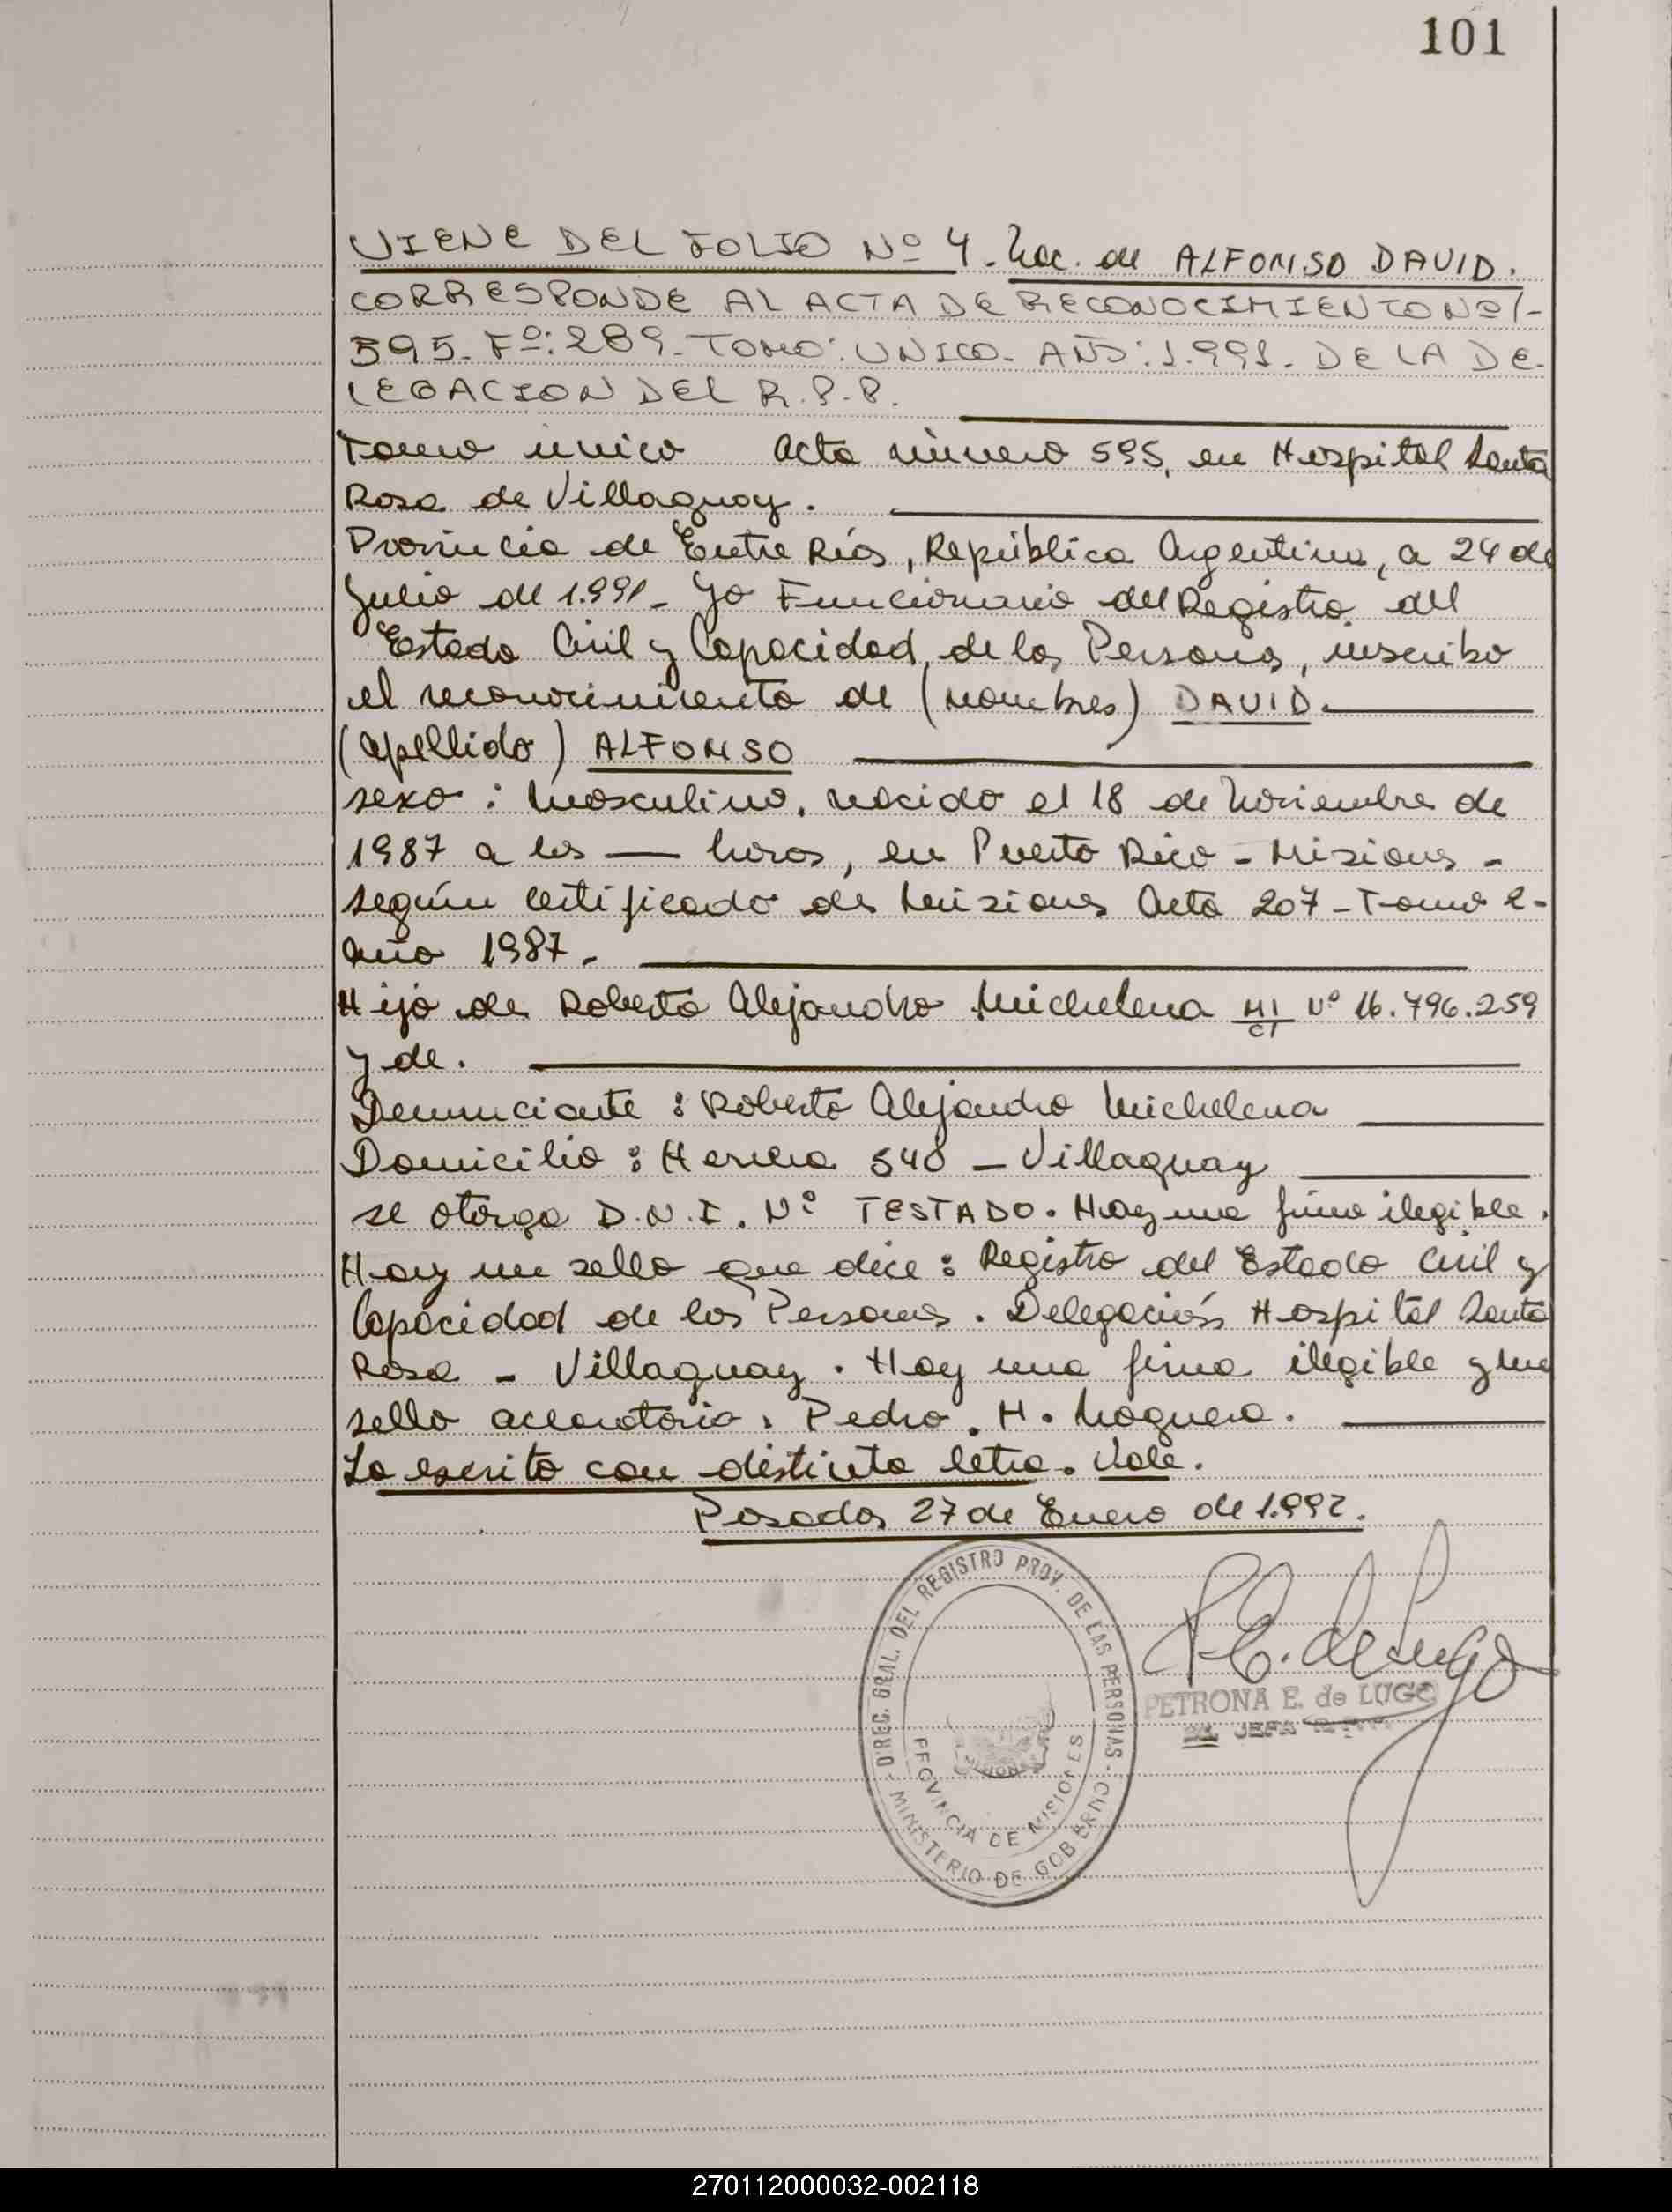 101
VIENE DEL FOLIO Nº 4. Nac. de ALFONSO DAVID.
CORRESPONDE AL ACTA DE RECONOCIMIENTO Nº/-
595. Fº: 289. TOMO: UNICO. AÑO: 1.991. DE LA DE-
LEGACION DEL R.P.P.
Tomo único Acta número 595, en Hospital Santa
Rosa de Villaguay.
Provincia de Entre Ríos, República Argentina, a 24 de
Julio de 1.991. Yo Funcionario del Registro del
Estado Civil y Capacidad de las Personas, inscribo
el reconocimiento de (nombres) DAVID.
(apellido) ALFONSO
sexo: masculino, nacido el 18 de Noviembre de
1987 a las — horas, en Puerto Rico - Misiones -
según certificado de Misiones Acta 207 - Tomo 2 -
año 1987.
Hijo de Roberto Alejandro Michelena MI/CI Nº 16.796.259
y de.
Denunciante: Roberto Alejandro Michelena
Domicilio: 540 - Villaguay
se otorga D.N.I. Nº TESTADO. Hay una firma ilegible.
Hay un sello que dice: Registro del Estado Civil y
Capacidad de las Personas. Delegación Hospital Santa
Rosa - Villaguay. Hay una firma ilegible y un
sello aclaratorio. Pedro. H. Noguera.
Lo escrito con distinta letra. Vale.
Posadas 27 de Enero de 1.992.
DIREC. GRAL. DEL REGISTRO PROV. DE LAS PERSONAS - MINISTERIO DE GOBIERNO
PROVINCIA DE MISIONES
P.E. de Lugo
PETRONA E. de LUGO
JEFA
270112000032-002118